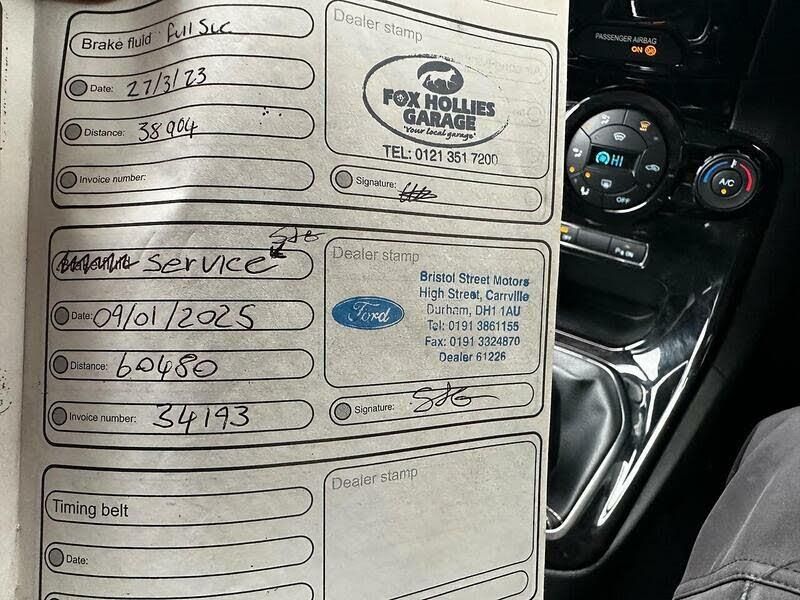 Brake fluid full svc
Date: 27/3/23
Distance: 38904
Invoice number:
Dealer stamp
FOX HOLLIES
GARAGE
"Your local garage"
TEL: 0121 351 7200
Signature:
Service
Date: 09/01/2025
Distance: 60480
Invoice number: 34193
Dealer stamp
Ford
Bristol Street Motors
High Street, Carrville
Durham, DH1 1AU
Tel: 0191 3861155
Fax: 0191 3324870
Dealer 61226
Signature:
Timing belt
Date:
Dealer stamp
PASSENGER AIRBAG
ON
HI
OFF
A/C